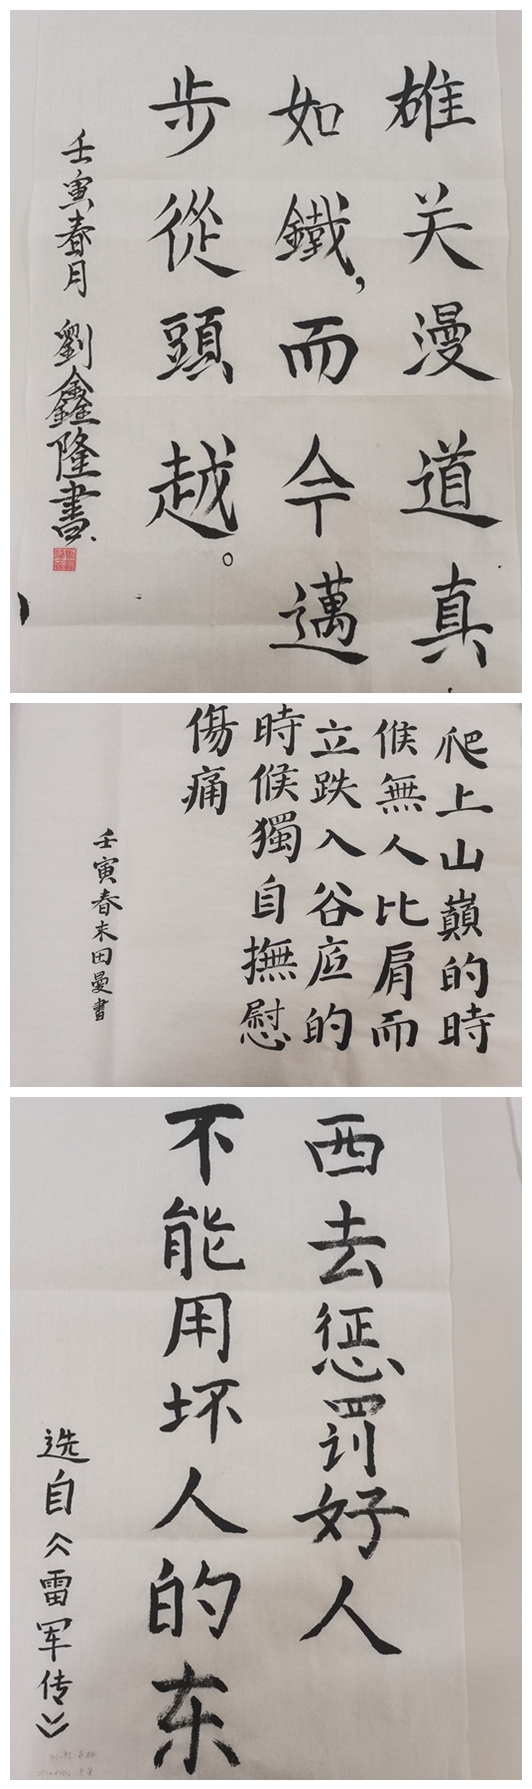 雄关漫道真
如鐵,而今邁
步從頭越。
壬寅春月 劉鑫隆書
爬上山巔的時
候無人比肩而
立跌入谷底的
時候獨自撫慰
傷痛
壬寅春末田曼書
不能用坏人的东
西去惩罚好人
选自《雷军传》